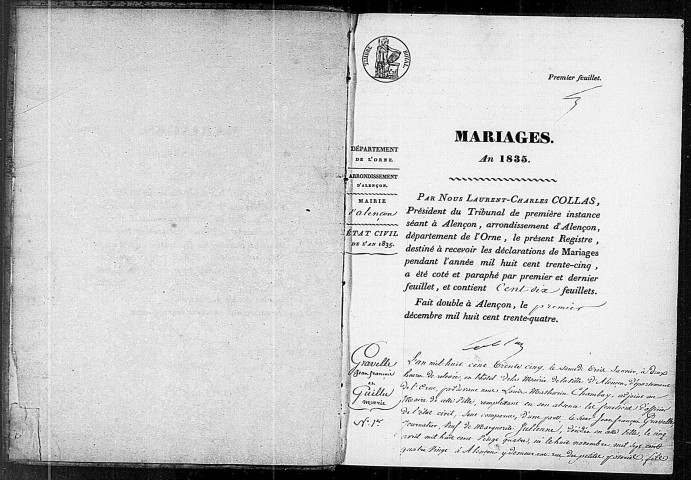 TIMBRE ROYAL
Premier feuillet.
MARIAGES.
An 1835.
DÉPARTEMENT
DE L'ORNE.
ARRONDISSEMENT
D'ALENÇON.
MAIRIE
d'alençon
ÉTAT CIVIL
DE L'AN 1835.
PAR NOUS LAURENT-CHARLES COLLAS,
Président du Tribunal de première instance
séant à Alençon, arrondissement d'Alençon,
département de l'Orne, le présent Registre,
destiné à recevoir les déclarations de Mariages
pendant l'année mil huit cent trente-cinq,
a été coté et paraphé par premier et dernier
feuillet, et contient Cent dix feuillets.
Fait double à Alençon, le premier
décembre mil huit cent trente-quatre.
Gravelle
Jean françois
et
Guillu
marie
N. 1er
L'an mil huit cent trente cinq, le samedi trois Janvier, à deux
heures de relevée, en l'hôtel de la Mairie de la Ville d'Alençon, département
de l'Orne, pardevant nous Louis Mathurin Chambay, adjoint au
Maire de cette Ville, remplissant en son absence les fonctions d'officier
de l'état civil, sont comparus, d'une part, le sieur Jean françois Gravelle
journalier, veuf de Marguerite Julienne, décédée en cette Ville, le cinq
avril mil huit cent vingt quatre, né le huit novembre mil sept cent
quatre vingt à Alençon y demeurant rue du petites, fils